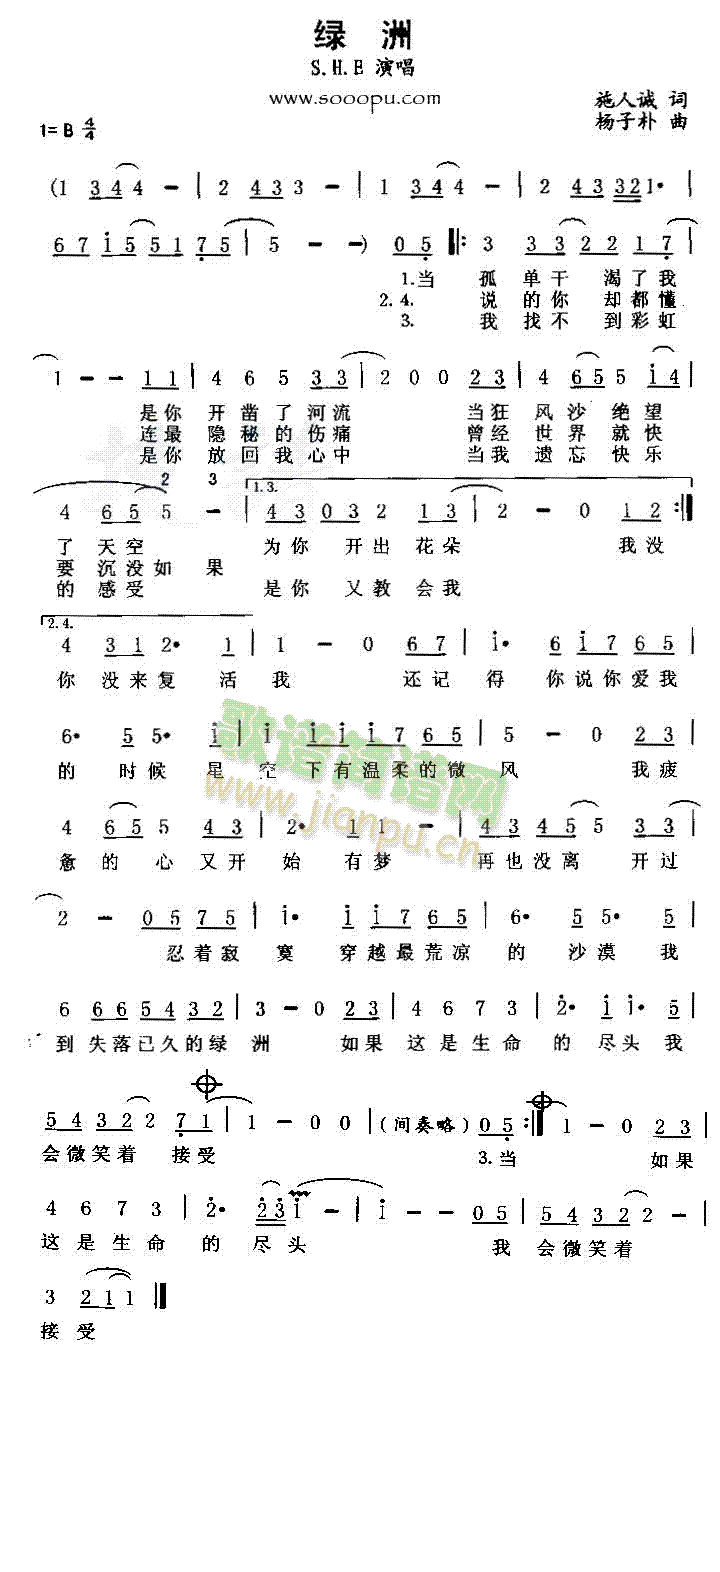 绿 洲
S.H.E 演唱
www.sooopu.com
施人诚 词
1= B 4/4
杨子朴 曲
(1 3 4 4 - | 2 4 3 3 - | 1 3 4 4 - | 2 4 3 3 2 1· |
6 7 i 5 5 1 7 5 | 5 - - ) 0 5 ‖: 3 3 3 2 2 1 7 |
1.当 孤 单 干 渴 了 我
2.4. 说 的 你 却 都 懂
3. 我 找 不 到 彩 虹
1 - - 1 1 | 4 6 5 3 3 | 2 0 0 2 3 | 4 6 5 5 i 4 |
是 你 开 凿 了 河 流 当 狂 风 沙 绝 望
连 最 隐 秘 的 伤 痛 曾 经 世 界 就 快
是 你 放 回 我 心 中 当 我 遗 忘 快 乐
2 3
1.3.
4 6 5 5 - | 4 3 0 3 2 1 3 | 2 - 0 1 2 :‖
了 天 空 为 你 开 出 花 朵 我 没
要 沉 没 如 果
的 感 受 是 你 又 教 会 我
2.4.
4 3 1 2· 1 | 1 - 0 6 7 | i· 6 i 7 6 5 |
你 没 来 复 活 我 还 记 得 你 说 你 爱 我
6· 5 5· i | i i i i 7 6 5 | 5 - 0 2 3 |
的 时 候 是 空 下 有 温 柔 的 微 风 我 疲
4 6 5 5 4 3 | 2· 1 1 - | 4 3 4 5 5 3 3 |
惫 的 心 又 开 始 有 梦 再 也 没 离 开 过
2 - 0 5 7 5 | i· i i 7 6 5 | 6· 5 5· 5 |
忍 着 寂 寞 穿 越 最 荒 凉 的 沙 漠 我
6 6 6 5 4 3 2 | 3 - 0 2 3 | 4 6 7 3 | 2· i i· 5 |
到 失 落 已 久 的 绿 洲 如 果 这 是 生 命 的 尽 头 我
5 4 3 2 2 7 1 | 1 - 0 0 | (间奏略) 0 5 :‖ 1 - 0 2 3 |
会 微 笑 着 接 受 3.当 如 果
4 6 7 3 | 2· 2 3 i - | i - - 0 5 | 5 4 3 2 2 - |
这 是 生 命 的 尽 头 我 会 微 笑 着
3 2 1 1 ‖
接 受
歌谱简谱网
www.jianpu.cn